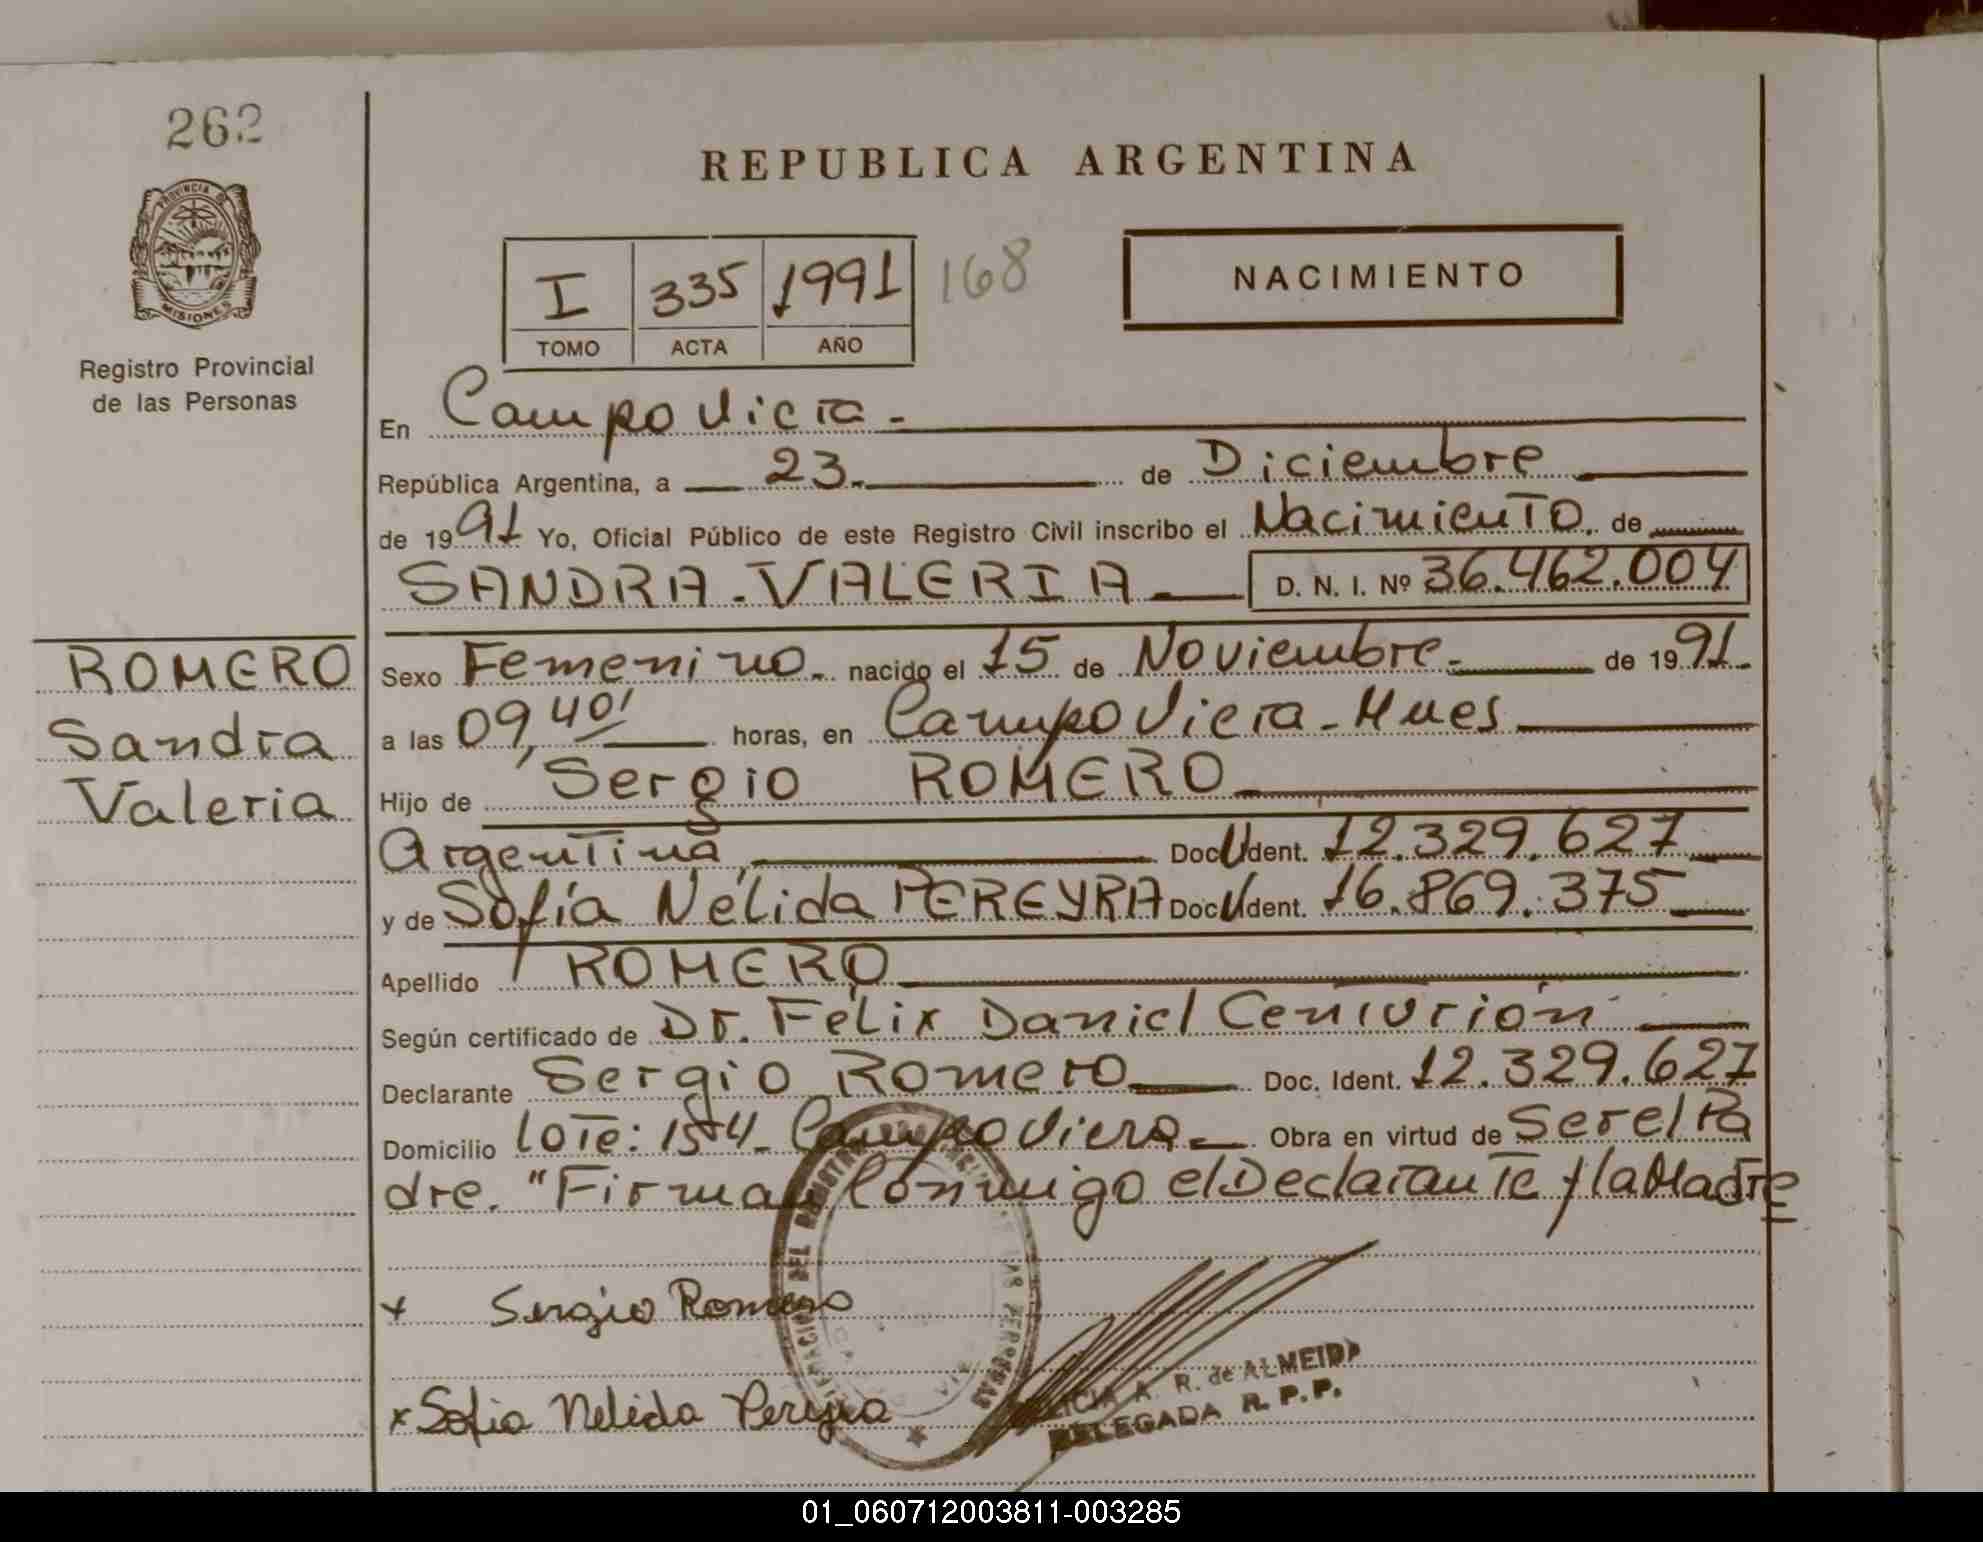 262
PROVINCIA DE
MISIONES
Registro Provincial
de las Personas
REPUBLICA ARGENTINA
I 335 1991 168
TOMO ACTA AÑO
NACIMIENTO
En Campo Viera -
República Argentina, a 23. de Diciembre
de 1991 Yo, Oficial Público de este Registro Civil inscribo el Nacimiento. de
SANDRA - VALERIA D. N. I. Nº 36.462.004
ROMERO
Sandra
Valeria
Sexo Femenino. nacido el 15 de Noviembre. de 1991.
a las 09,40' horas, en Campo Viera - Mnes
Hijo de Sergio ROMERO
Argentina, Doc U Ident. 12.329.627
y de Sofía Nélida PEREYRA Doc U Ident. 16.869.375
Apellido ROMERO
Según certificado de Dr. Félix Daniel Centurión
Declarante Sergio Romero Doc. Ident. 12.329.627
Domicilio Lote: 154 - Campo Viera. Obra en virtud de Ser el Pa
dre. "Firman Conmigo el Declarante y la Madre
x Sergio Romero
x Sofia Nelida Pereyra
A. R. de ALMEIDA
DELEGADA R. P. P.
01_060712003811-003285